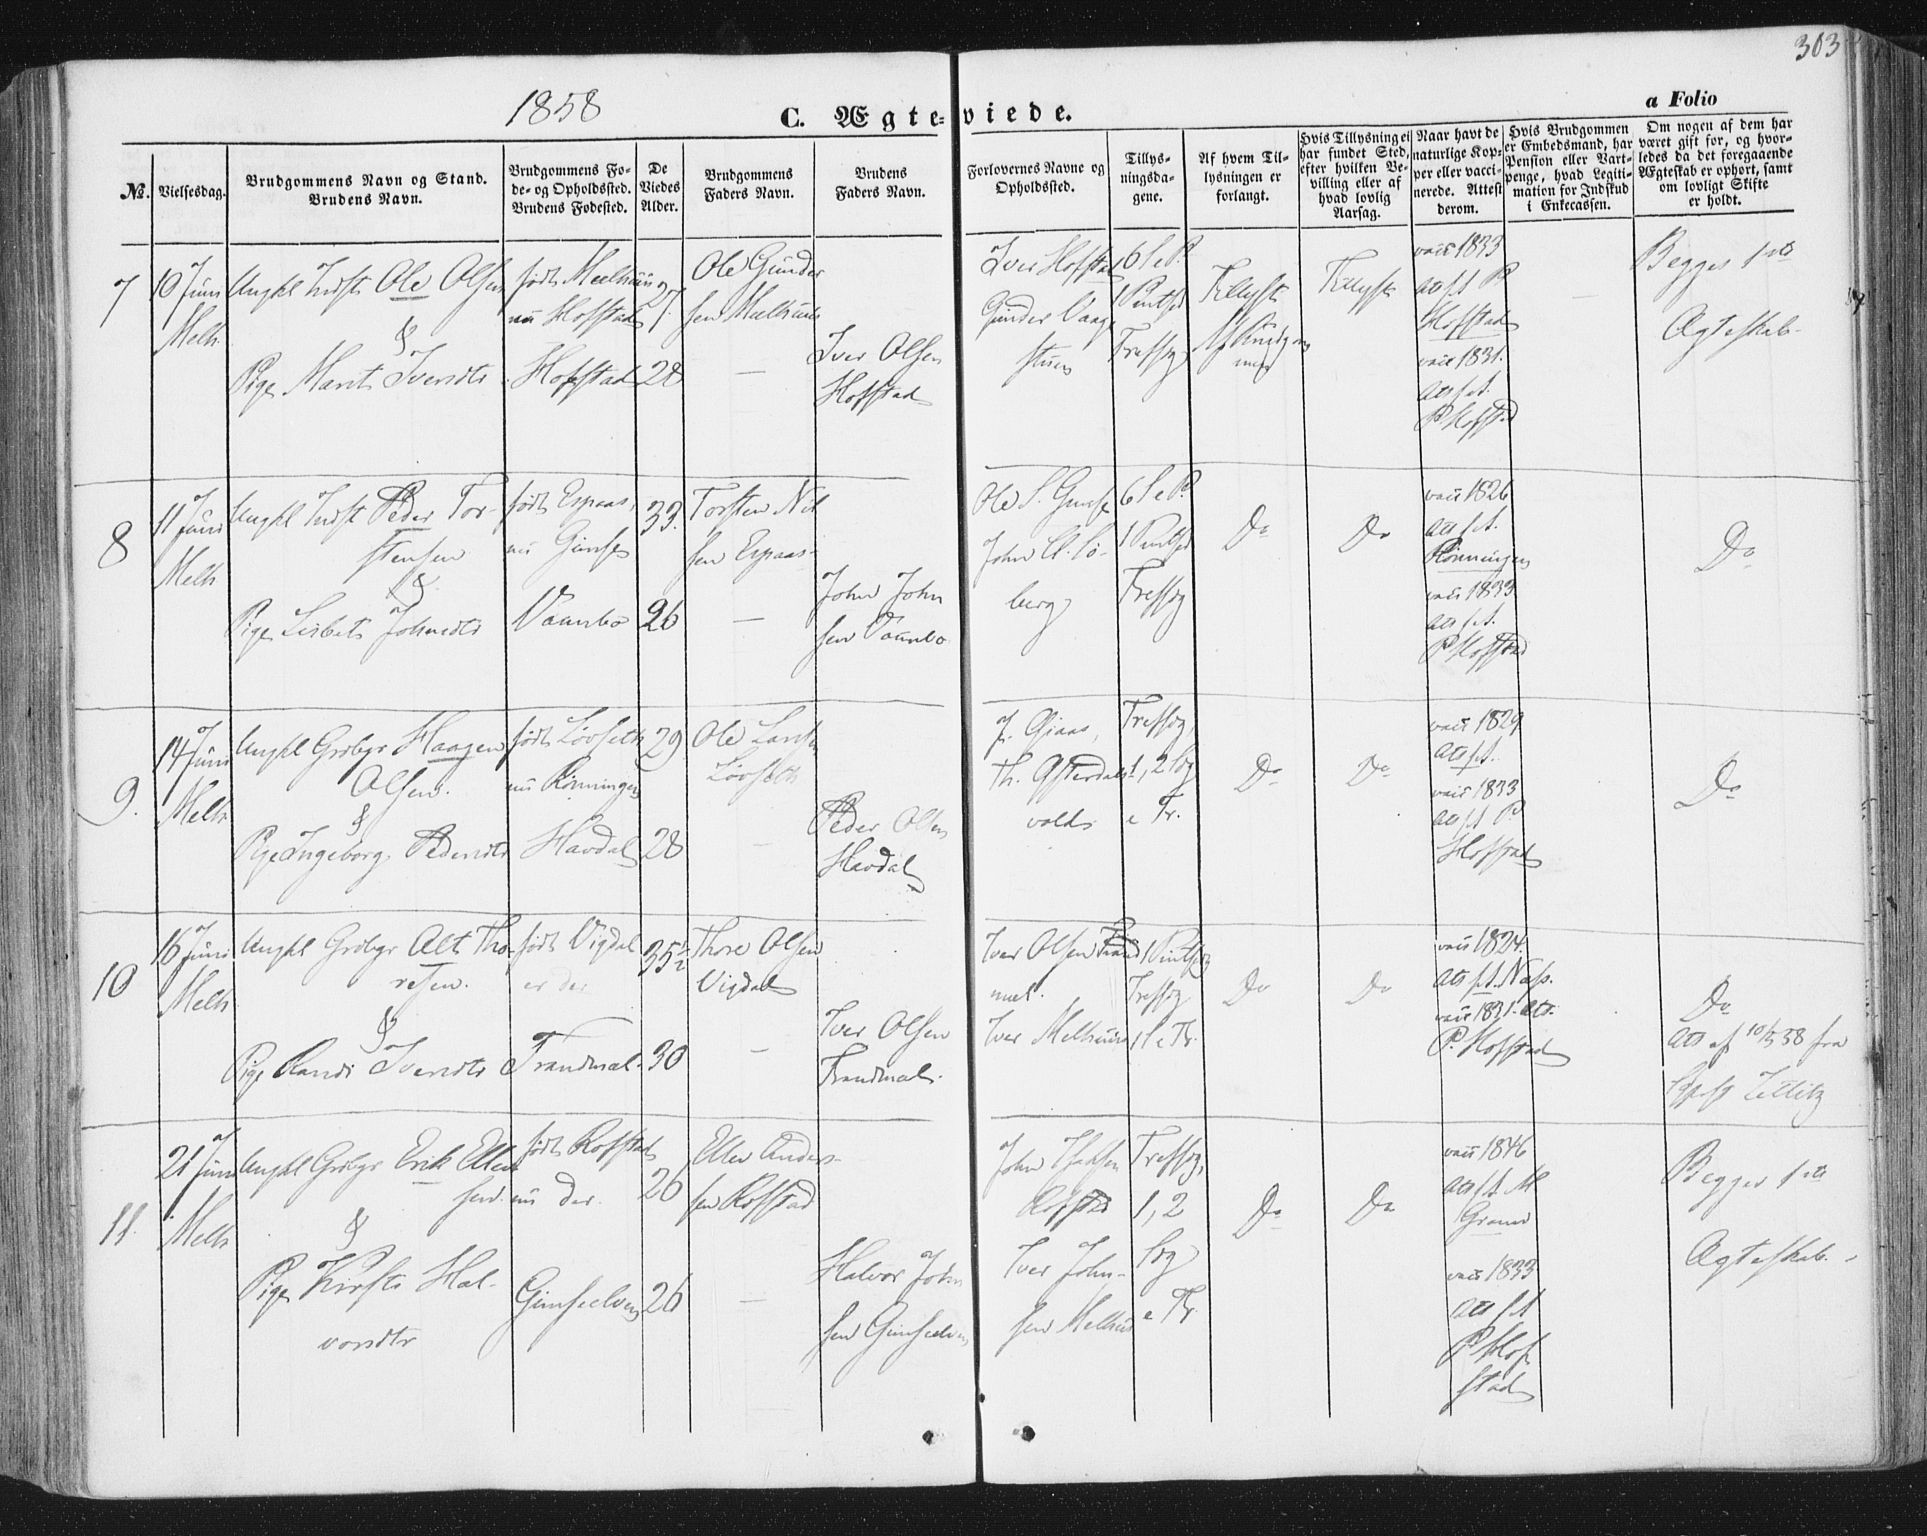 303
1858
C. Ægteviede.
a Folio
№.
Vielsesdag.
Brudgommens Navn og Stand.
Brudens Navn.
Brudgommens Fo-
de- og Opholdssted.
Brudens Fødested.
De
Viedes
Alder.
Brudgommens
Faders Navn.
Brudens
Faders Navn.
Forlovernes Navne og
Opholdssted.
Tillys-
ningsda-
gene.
Af hvem Til-
lysningen er
forlangt.
Hvis Tillysning ei
har fundet Sted,
efter hvilken Be-
villing eller af
hvad lovlig
Aarsag.
Naar havt de
naturlige Kop-
per eller vacci-
nerede. Attest
derom.
Hvis Brudgommen
er Embedsmand, har
Pension eller Vart-
penge, hvad Legiti-
mation for Indskud
i Enkecassen.
Om nogen af dem har
været gift før, og hvor-
ledes da det foregaaende
Ægteskab er ophørt, samt
om lovligt Skifte
er holdt.
7
10 Juni
Melh.
Ungkl Indst Ole Olsen
&
Pige Marit Iversdtr
født Melhuus
nu Hofstad
Hofstad
27.
28
Ole Gunder
sen Melhuus
—
Iver Olsen
Hofstad
Iver Hofstad
Gunder Vaage
stuen
6 S e P.
1 Pintsd
Trefsøg
Tillyst
Af Brudgom
men
Tillyst
vacc 1833
att s. A. P
Hofstad
vacc 1831.
att s. A.
P Hofstad
Begges 1ste
Ægteskab.
8
11 Juni
Melh
Ungkl Indst Peder Tor-
stensen
&
Pige Lisbet Johnsdtr
født Espaas,
nu Gimse
Vaunbo
33.
26
Torsten Nil
sen Espaas
—
John John
sen Vaunbo
Ole S. Gimse
John Cl. Sø-
berg
6 S e P.
1 Pintsd
Trefsøg
Do
Do
vacc 1826
att s. A.
Rønningen
vacc 1833
att s. A.
P Hofstad
Do
9.
14 Juni
Melh
Ungkl Grdbgr Haagen
Olsen.
&
Pige Ingeborg Pedersdtr
født Løvseth
nu Rønningen
Havdal
29
28
Ole Larsen
Løvseth
—
Peder Olsen
Havdal
Trefsøg,
1, 2 Søg
e Tr.
Do
Do
vacc 1829
att s. A.
vacc 1833
att s. A. P
Hofstad
Do
10
16 Juni
Melh
Ungkl Grdbgr Alt Tho-
resen.
&
Pige Randi Iversdtr
født Vigdal
er der
Trandmæl.
35½
30
Thore Olsen
Vigdal
—
Iver Olsen
Trandmæl.
Iver Olsen Trand
mæl.
Iver Melhuus
1 Pintsdg
Trefsøg
1 S e Tr.
Do
Do
vacc 1824.
att s. A.
vacc 1831. att.
P. Hofstad
Do
Att af 10/5 58 fra
11.
21 Juni
Melh
Ungkl Grdbgr Erik Ellev
sen
&
Pige Kirsti Hal-
vorsdtr
født Rofstad
nu der.
Gimseelven
26
26
Ellev Anders-
sen Rofstad
—
Halvor John
sen Gimseelven
John
Rofstad
Iver John-
sen Melhuus
Trefsøg,
1, 2
Søg
e Tr
Do
Do
vacc 1846
att s. A. M
Gram
vacc 1833
att s. A
P Hof
stad
Begges 1ste
Ægteskab.